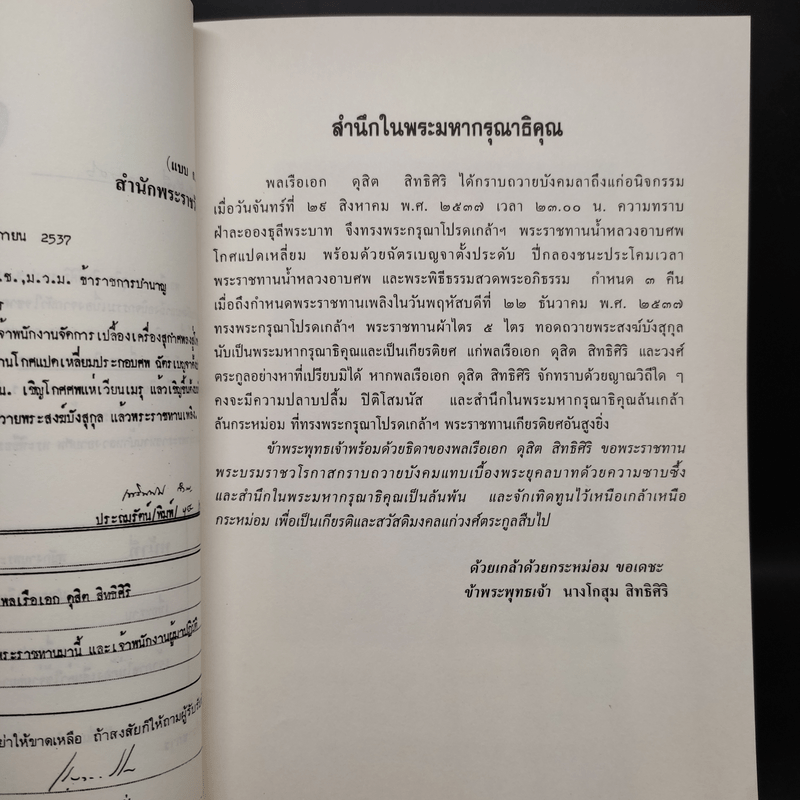 (แบบ
สำนักพระราช
ายน 2537
.ช.,ม.ว.ม. ข้าราชการบำนาญ
ร
เจ้าพนักงานจัดการ เปลื้องเครื่องสุกำศพ
านโกศแปดเหลี่ยมประกอบศพ ฉัตรเบญจา
น. เชิญโกศศพแห่เวียนเมรุ แล้วเชิญขึ้น
วายพระสงฆ์บังสุกุล แล้วพระราชทานเพลิง.
ประถมรัตน์/พิมพ์/
พลเรือเอก ดุสิต สิทธิศิริ
พระราชทานมานี้ และเจ้าพนักงานผู้มาปฏิบัติ
ย่าให้ขาดเหลือ ถ้าสงสัยก็ให้ถามผู้รับ
สำนึกในพระมหากรุณาธิคุณ
พลเรือเอก ดุสิต สิทธิศิริ ได้กราบถวายบังคมลาถึงแก่อนิจกรรม
เมื่อวันจันทร์ที่ ๒๙ สิงหาคม พ.ศ. ๒๕๓๗ เวลา ๒๓.๐๐ น. ความทราบ
ฝ่าละอองธุลีพระบาท จึงทรงพระกรุณาโปรดเกล้าฯ พระราชทานน้ำหลวงอาบศพ
โกศแปดเหลี่ยม พร้อมด้วยฉัตรเบญจาตั้งประดับ ปี่กลองชนะประโคมเวลา
พระราชทานน้ำหลวงอาบศพ และพระพิธีธรรมสวดพระอภิธรรม กำหนด ๓ คืน
เมื่อถึงกำหนดพระราชทานเพลิงในวันพฤหัสบดีที่ ๒๒ ธันวาคม พ.ศ. ๒๕๓๗
ทรงพระกรุณาโปรดเกล้าฯ พระราชทานผ้าไตร ๕ ไตร ทอดถวายพระสงฆ์บังสุกุล
นับเป็นพระมหากรุณาธิคุณและเป็นเกียรติยศ แก่พลเรือเอก ดุสิต สิทธิศิริ และวงศ์
ตระกูลอย่างหาที่เปรียบมิได้ หากพลเรือเอก ดุสิต สิทธิศิริ จักทราบด้วยญาณวิถีใด ๆ
คงจะมีความปลาบปลื้ม ปิติโสมนัส และสำนึกในพระมหากรุณาธิคุณล้นเกล้า
ล้นกระหม่อม ที่ทรงพระกรุณาโปรดเกล้าฯ พระราชทานเกียรติยศอันสูงยิ่ง
ข้าพระพุทธเจ้าพร้อมด้วยธิดาของพลเรือเอก ดุสิต สิทธิศิริ ขอพระราชทาน
พระบรมราชวโรกาสกราบถวายบังคมแทบเบื้องพระยุคลบาทด้วยความซาบซึ้ง
และสำนึกในพระมหากรุณาธิคุณเป็นล้นพ้น และจักเทิดทูนไว้เหนือเกล้าเหนือ
กระหม่อม เพื่อเป็นเกียรติและสวัสดิมงคลแก่วงศ์ตระกูลสืบไป
ด้วยเกล้าด้วยกระหม่อม ขอเดชะ
ข้าพระพุทธเจ้า นางโกสุม สิทธิศิริ